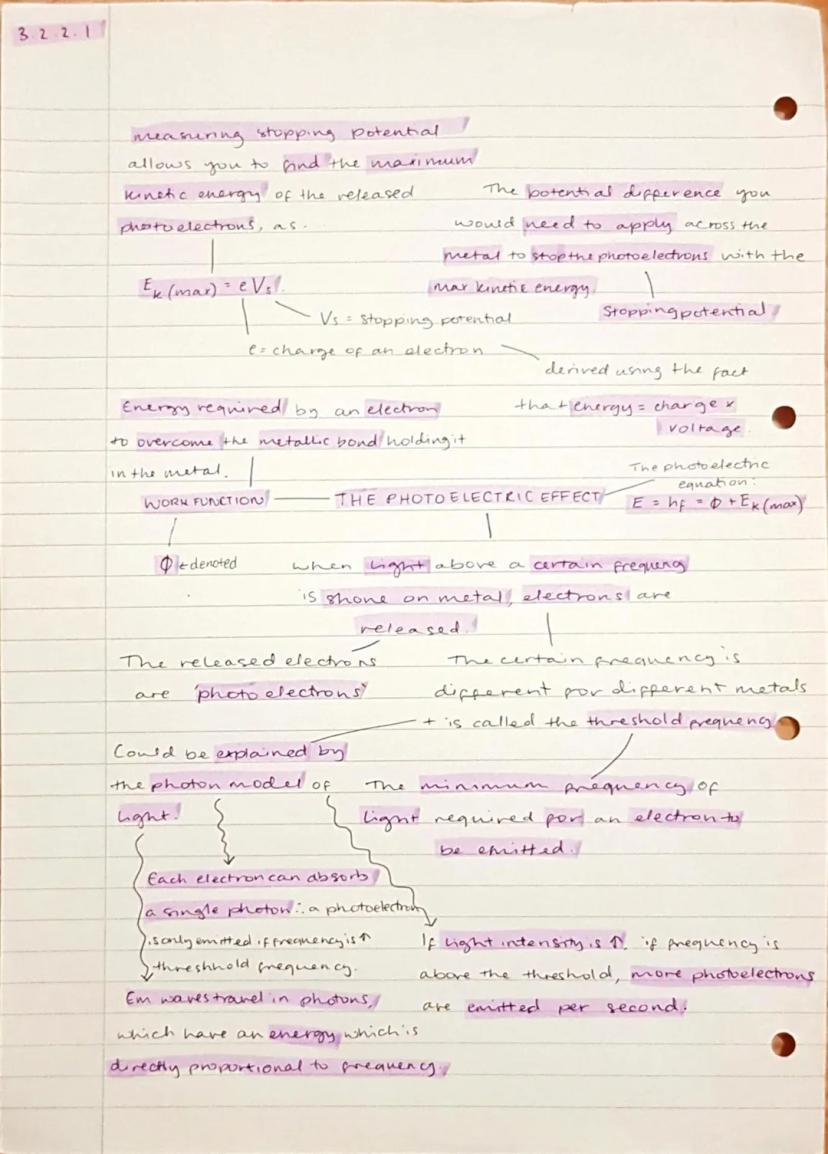 3.2.2.1
measuring stopping potential
allows you to find the maximum
kinetic energy of the released
photoelectrons, as.
Ek(max) = eVs.
Vs = stopping potential
e = charge of an electron
The potential difference you
would need to apply across the
metal to stop the photoelectrons with the
max kinetic energy.
Stopping potential
derived using the fact
that energy = charge x
voltage.
Energy required by an electron
to overcome the metallic bond holding it
in the metal.
WORK FUNCTION
THE PHOTOELECTRIC EFFECT
The photoelectric
equation:
E = hf = Φ + Ek(max)
Φ ← denoted
when light above a certain frequency
is shone on metal, electrons are
released.
The released electrons
are 'photoelectrons'
The certain frequency is
different for different metals
+ is called the threshold frequency
Could be explained by
the photon model of
light.
The minimum frequency of
light required for an electron to
be emitted.
Each electron can absorb
a single photon ∴ a photoelectron
is only emitted if frequency is ↑
threshhold frequency.
If light intensity is ↑, if frequency is
above the threshold, more photoelectrons
are emitted per second.
Em waves travel in photons,
which have an energy which is
directly proportional to frequency.